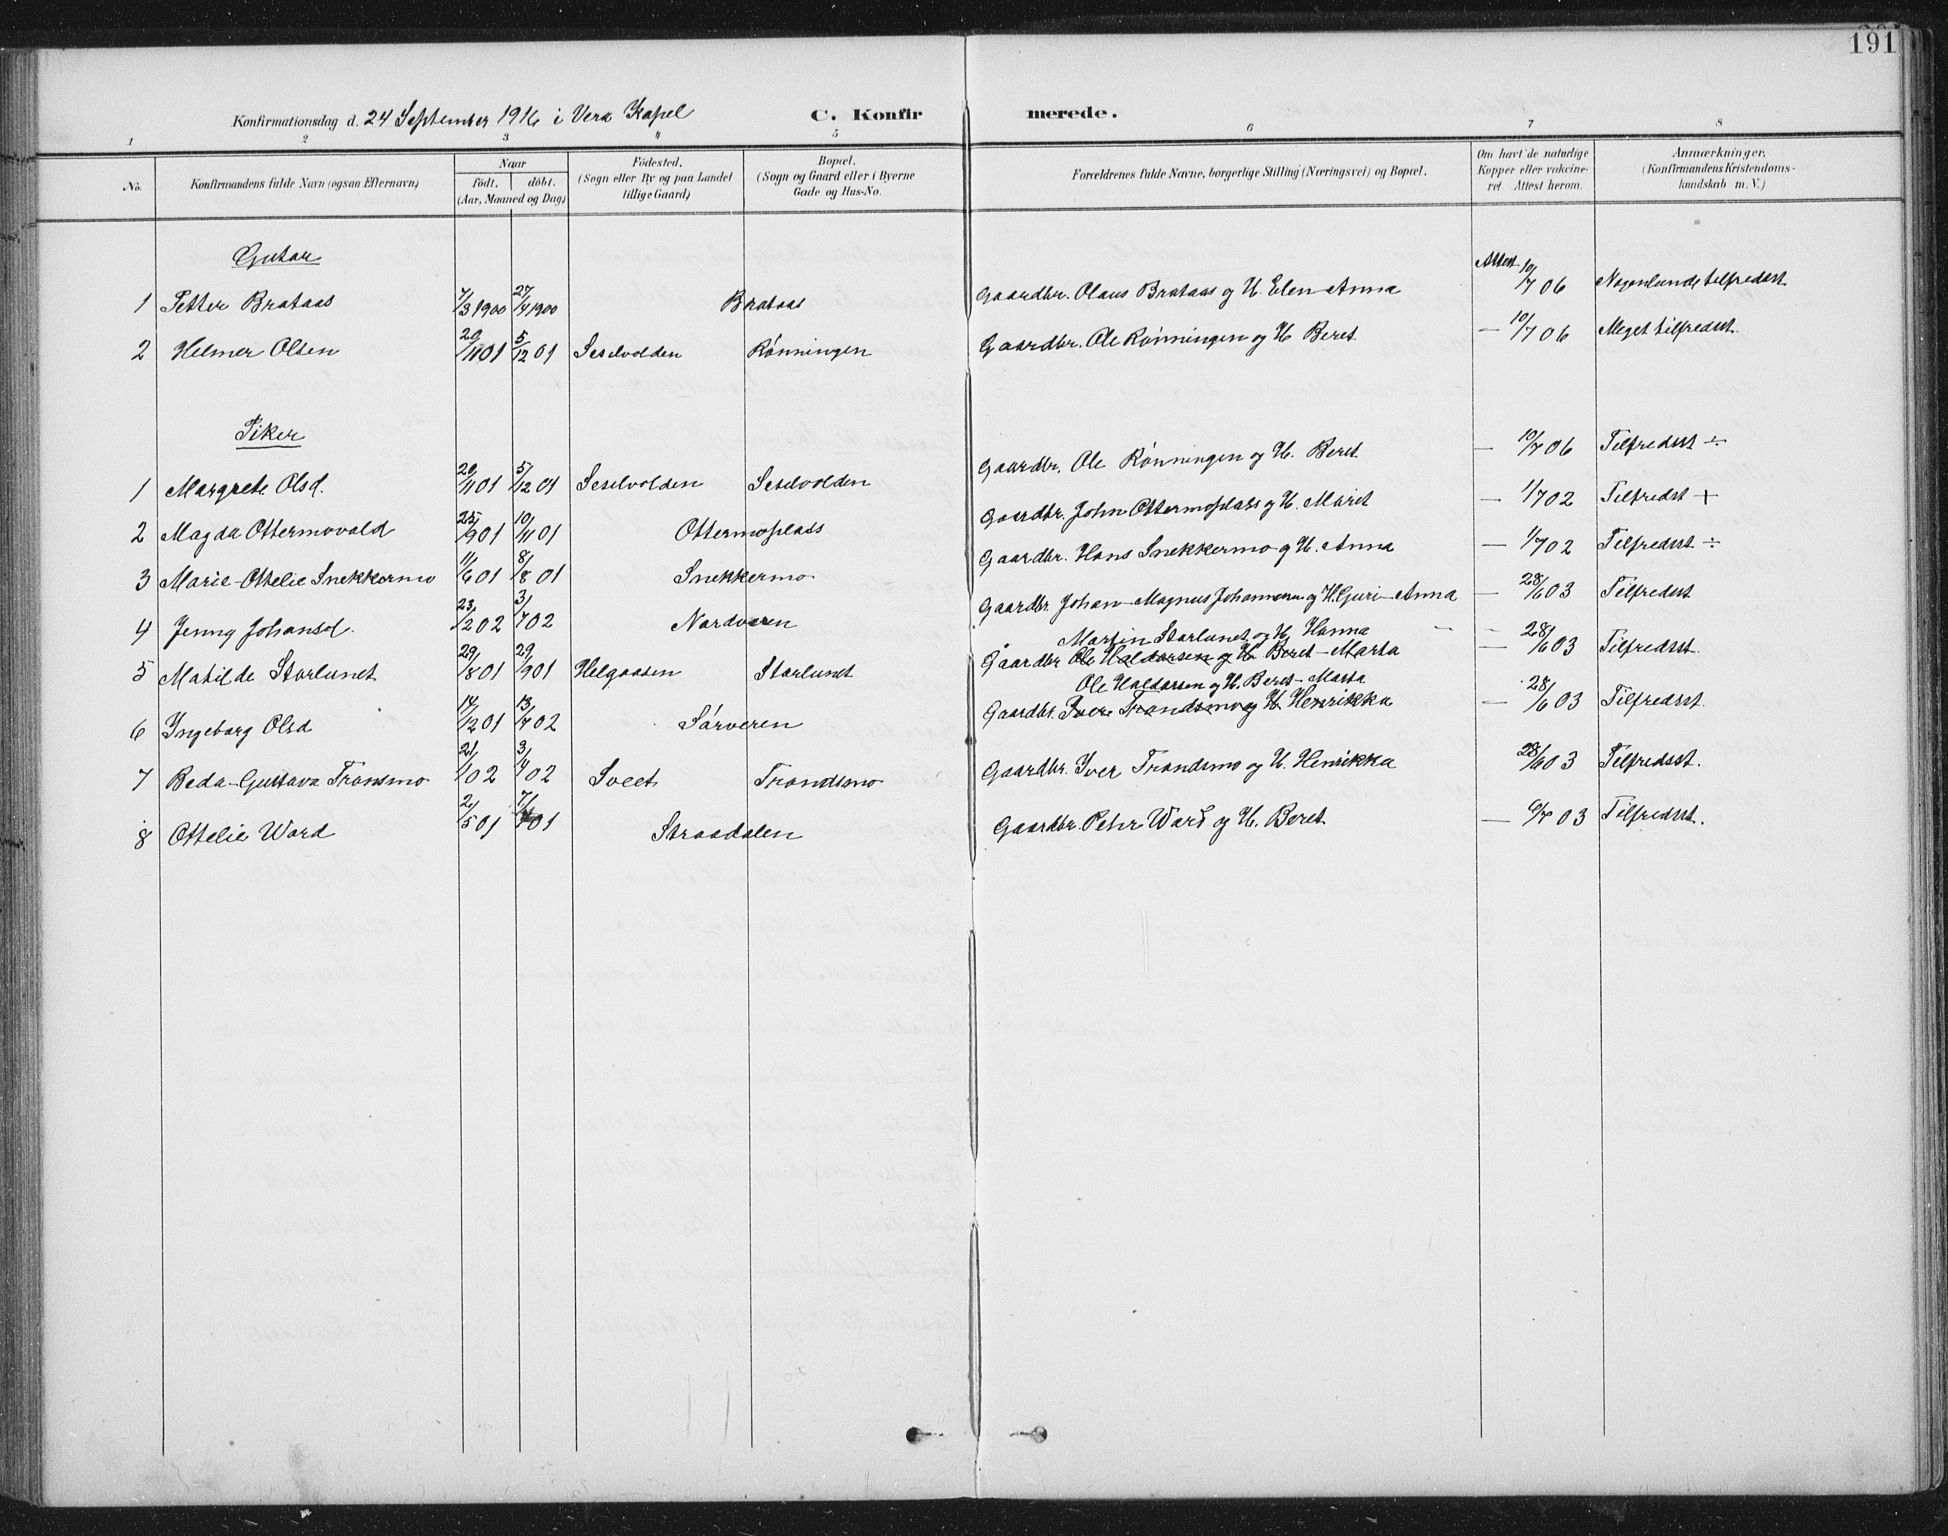 191
Konfirmationsdag d. 24 September 1916 i Vera Kapel C. Konfirmerede.
1 2 3 4 5 6 7 8
No. Konfirmandens fulde Navn (ogsaa Efternavn) Naar födt. döbt. (Aar, Maaned og Dag) Födested. (Sogn eller By og paa Landet tillige Gaard) Bopæl. (Sogn og Gaard eller i Byerne Gade og Hus-No. Forældrenes fulde Navne, borgerlige Stilling (Næringsvei) og Bopæl. Om havt de naturlige Kopper eller vakcineret Attest herom. Anmærkninger. (Konfirmandens Kristendomskundskab m. V.)
Gutar
1 Petter Brataas 7/3 1900 27/4 1900 Brataas Gaardbr. Olaus Brataas og H. Elen-Anna Attest 10/7 06 Nogenlunde tilfredsst
2 Helmer Olsen 20/11 01 5/12 01 Seselvolden Rønningen Gaardbr. Ole Rønningen og H. Beret — 10/7 06 Meget tilfredsst.
Piker
1 Margrete Olsd. 20/11 01 5/12 01 Seselvolden Seselvolden Gaardbr. Ole Rønningen og H. Beret — 10/7 06 Tilfredsst ÷
2 Magda Ottermovald 25/9 01 10/11 01 Ottermoplass Gaardbr. John Ottermoplass og H. Maret — 1/7 02 Tilfredst +
3 Marie-Ottelie Snekkermo 11/6 01 8/8 01 Snekkermo Gaardbr. Hans Snekkermo og H. Anna — 1/7 02 Tilfredsst ÷
4 Jenny Johansd. 23/2 02 3/7 02 Nordveren Gaardbr. Johan-Magnus Johannesen og H. Guri-Anna — 28/6 03 Tilfredsst
Martin Storlunet og H. Hanna
5 Matilde Storlunet 29/8 01 29/9 01 Helgaasen Storlunet Gaardbr Ole Haldorsen og H. Beret-Marta — 28/6 03 Tilfredsst.
Ole Haldorsen og H. Beret-Marta
6 Ingeborg Olsd 14/12 01 13/4 02 Sørveren Gaardbr. Iver Trondsmo og H. Henrikka — 28/6 03 Tilfredsst.
7 Beda-Gustava Tronsmo 21/1 02 3/4 02 Sveet Trondsmo Gaardbr. Iver Trondsmo og H. Henrikka 28/6 03 Tilfredsst.
8 Ottelie Ward 2/5 01 01 Straadalen Gaardbr. Peter Ward og H. Beret — 6/7 03 Tilfredsst.